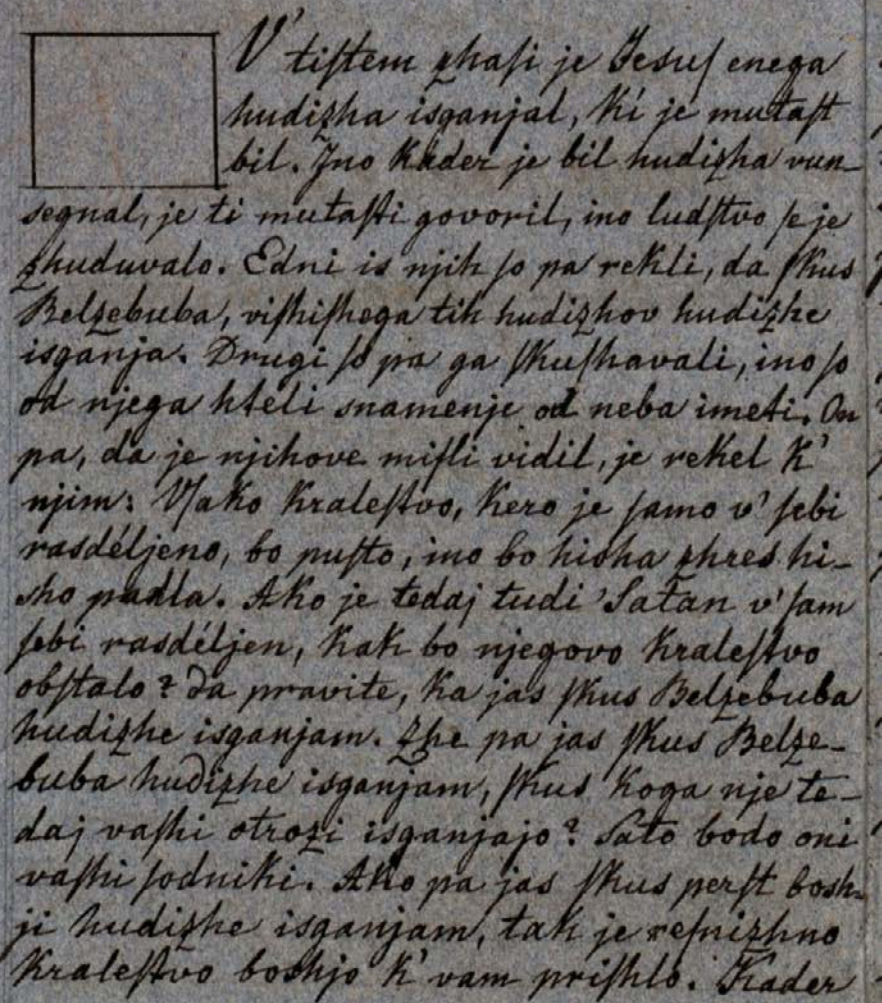 V' tiſtem zhaſi je Jesuſ enega
hudizha isganjal, ki je mutaſt
bil. Ino kader je bil hudizha vun-
segnal, je ti mutaſti govoril, ino ludſtvo ſe je
zhuduvalo. Edni is njih ſo pa rekli, da ſkus
Belzebuba, viſhiſhega tih hudizhov hudizhe
isganja. Drugi ſo pa ga ſkuſhavali, ino ſo
od njega hteli snamenje od neba imeti. On
pa, da je njihove miſli vidil, je rekel k'
njim: Vſako kraleſtvo, kero je ſamo v' ſebi
rasdéljeno, bo puſto, ino bo hisha zhres hi-
sho padla. Ako je tedaj tudi 'Satan v' ſam
ſebi rasdéljen, kak bo njegovo kraleſtvo
obſtalo? da pravite, ka jas ſkus Belzebuba
hudizhe isganjam. Zhe pa jas ſkus Belze-
buba hudizhe isganjam, ſkus koga nje te-
daj vaſhi otrozi isganjajo? Sato bodo oni
vaſhi ſodniki. Ako pa jas ſkus perſt bosh-
ji hudizhe isganjam, tak je reſnizhno
kraleſtvo boshjo k' vam priſhlo. Kader